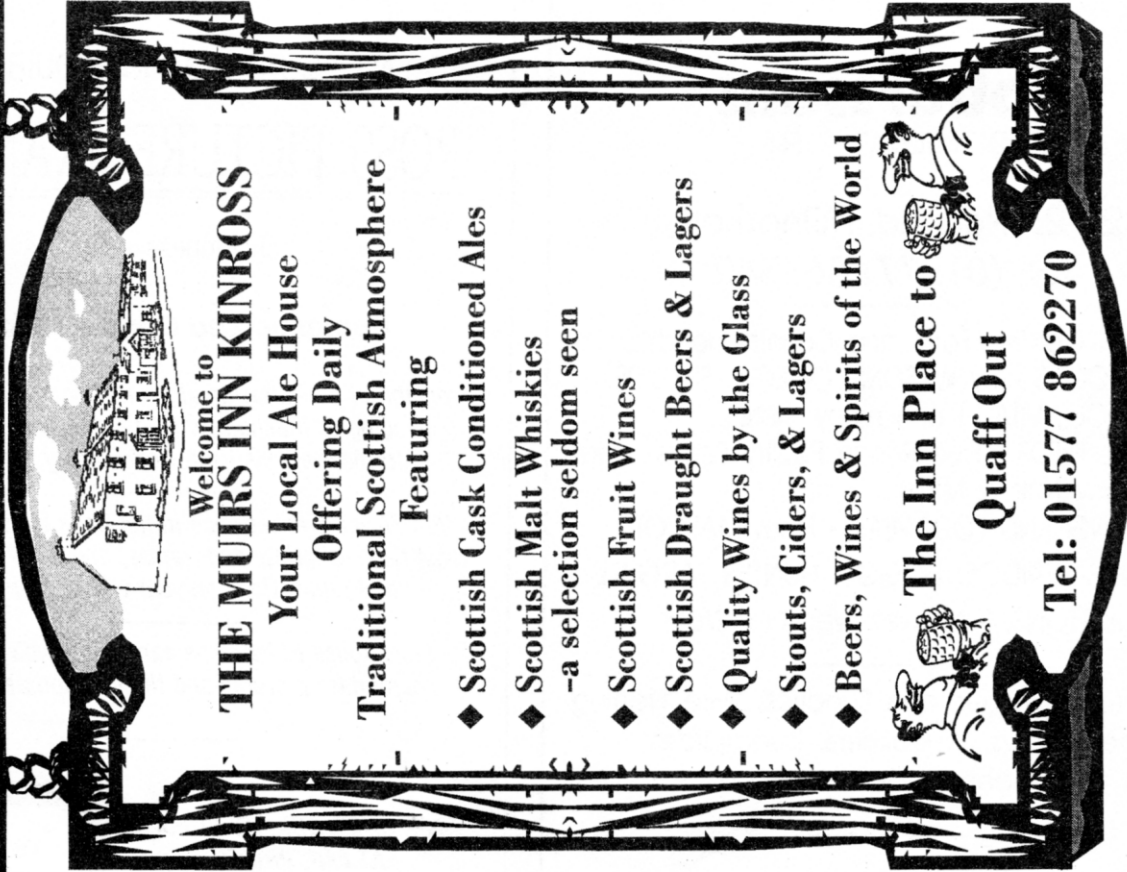 Welcome to
THE MUIRS INN KINROSS
Your Local Ale House
Offering Daily
Traditional Scottish Atmosphere
Featuring
◆ Scottish Cask Conditioned Ales
◆ Scottish Malt Whiskies
-a selection seldom seen
◆ Scottish Fruit Wines
◆ Scottish Draught Beers & Lagers
◆ Quality Wines by the Glass
◆ Stouts, Ciders, & Lagers
◆ Beers, Wines & Spirits of the World
The Inn Place to
Quaff Out
Tel: 01577 862270